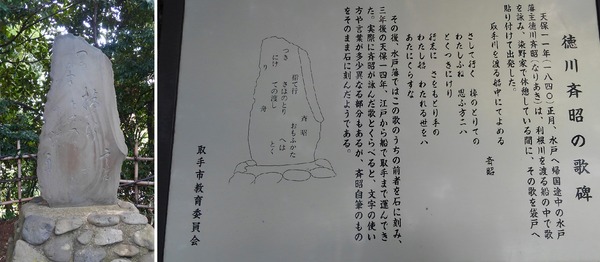 徳川斉昭の歌碑
天保一一年(一八四〇)正月、水戸へ帰国途中の水戸
藩主徳川斉昭(なりあき)は、利根川を渡る船の中で歌
を詠み、染野家で休憩している間に、その歌を袋戸へ
貼り付けて出発した。
取手川を渡る船中にてよめる
斉昭
さして行
棹のとりての
わたし舟
思ふ方には
とくつきにけり
行末に
さをもとり手の
わたし船
わたれる世をハ
あたにくらすな
その後、水戸藩ではこの歌のうちの前者を石に刻み、
三年後の天保一四年、江戸から船で取手まで運んでき
た。実際に斉昭が詠んだ歌とくらべると、文字の使い
方や言葉が多少異なる部分もあるが、斉昭自筆のもの
をそのまま石に刻んだようである。
斉昭
おもふかた
へは
とく
指て行
さほのとり
ての渡し
舟
つき
にけ
り
取手市教育委員会